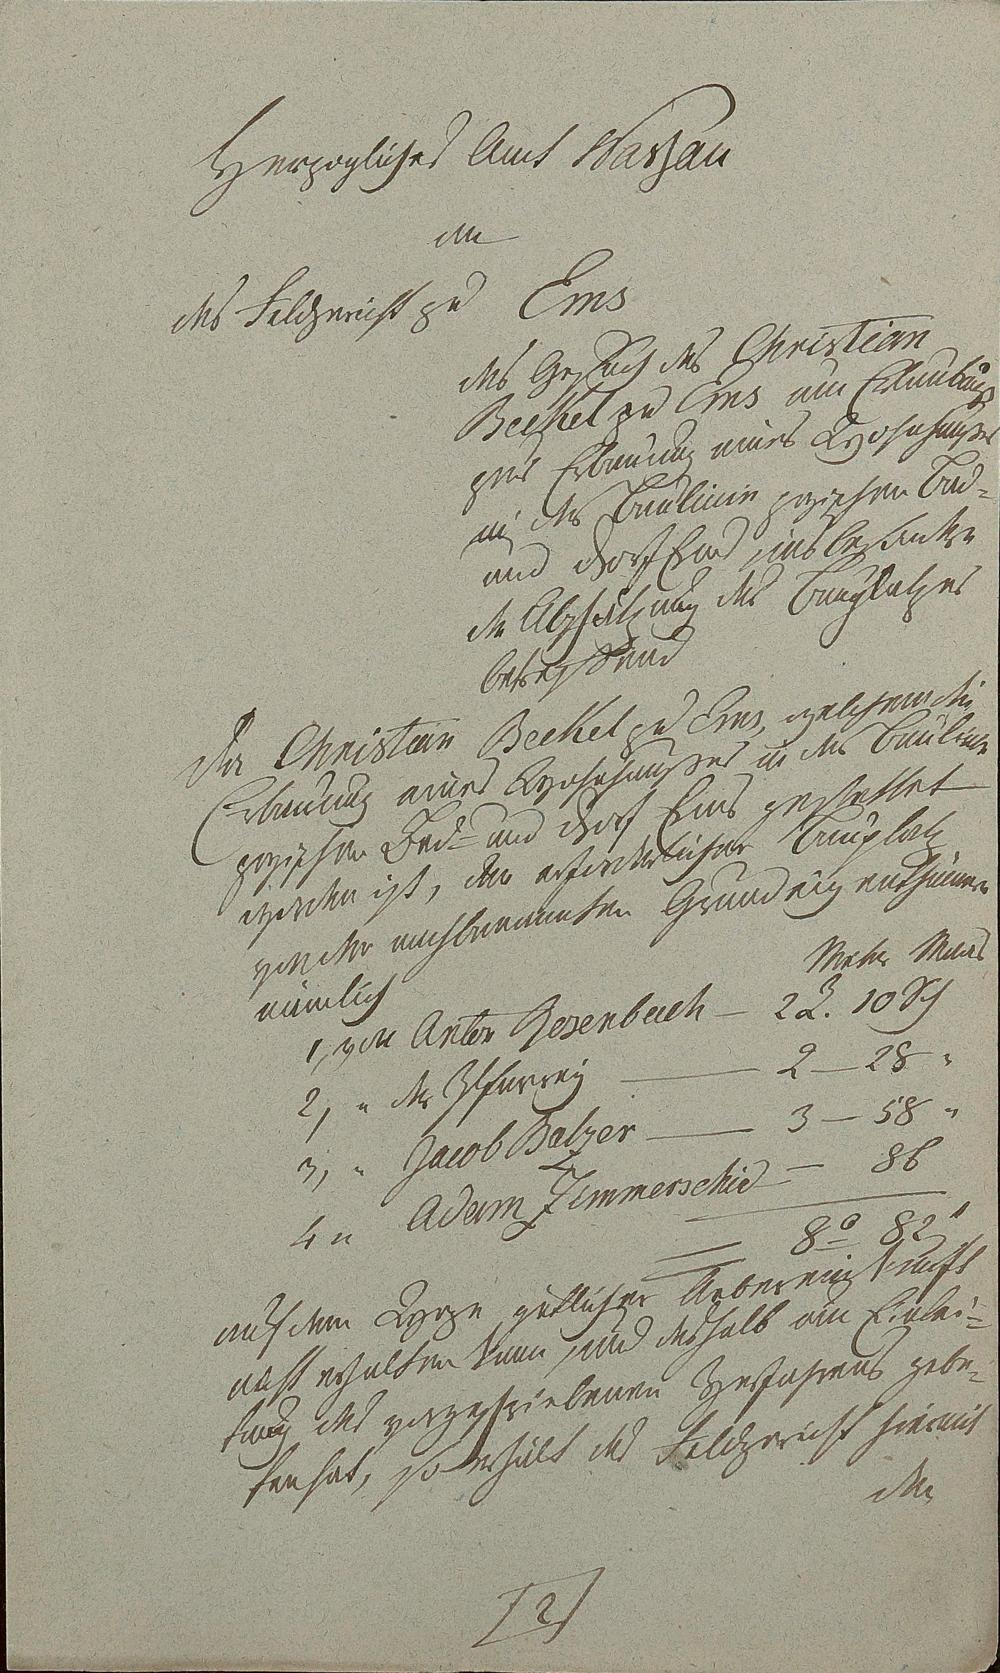 Herzogliches Amt Nassau
an
das Feldgericht zu Ems
das Gesuch des Christian
Beckel zu Ems um Erlaubniß
zur Erbauung eines Wohnhauses
in der Baulinie zwischen Bad-
und Dorf Ems, insbesondere
die Abschätzung des Bauplatzes
betreffend
Da Christian Beckel zu Ems, welchem die
Erbauung eines Wohnhauses in der Baulinie
zwischen Bad- und Dorf Ems gestattet
worden ist, den erforderlichen Bauplatz
von den nachbenannten Grundeigenthümern
nämlich
Meter Maas
1, von Anton Rosenbach — 2 R. 10 Sch
2, " der Pfarrei — 2 — 28 "
3, " Jacob Balzer — 3 — 58 "
4 " Adam Zimmerschied — 86
8° 82'
auf dem Wege gütlicher Uebereinkunft
nicht erhalten kann, und deshalb um Einlei-
tung des vorgeschriebenen Verfahrens gebe-
ten hat, so erhält das Feldgericht hiermit
den
[2]